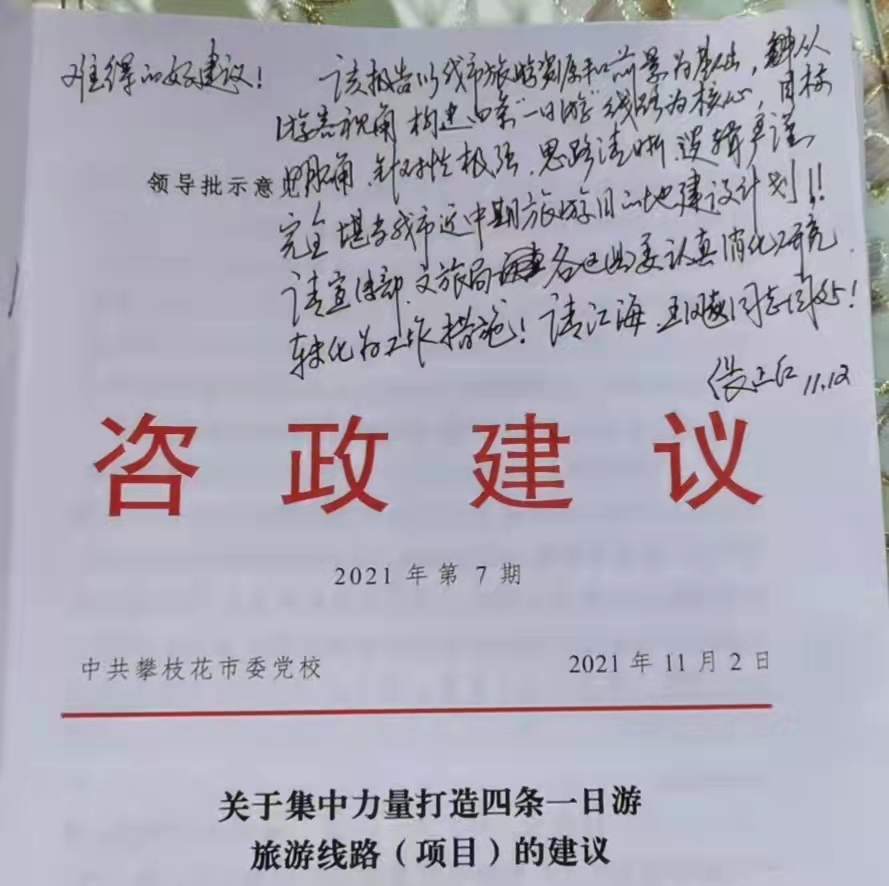 难得的好建议!
该报告以我市旅游资源和前景为基础,从
游客视角构建四条“一日游”线路为核心,目标
领导批示意见
明确,针对性极强,思路清晰,逻辑严谨,
完全堪当我市近中期旅游目的地建设计划!!
请宣传部、文旅局 各区县委认真消化研究,
转化为工作措施!请江海、同志阅处!
11.12
咨政建议
2021年第7期
中共攀枝花市委党校
2021年11月2日
关于集中力量打造四条一日游
旅游线路(项目)的建议